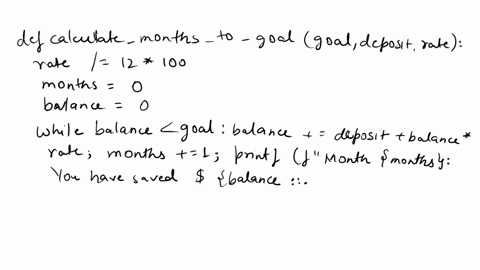 def calculate_months_to_goal (goal, deposit, rate):
rate /= 12 * 100
months = 0
balance = 0
while balance < goal : balance += deposit + balance *
rate; months +=1; print} (f" Month {months}:
You have saved $ {balance ::.